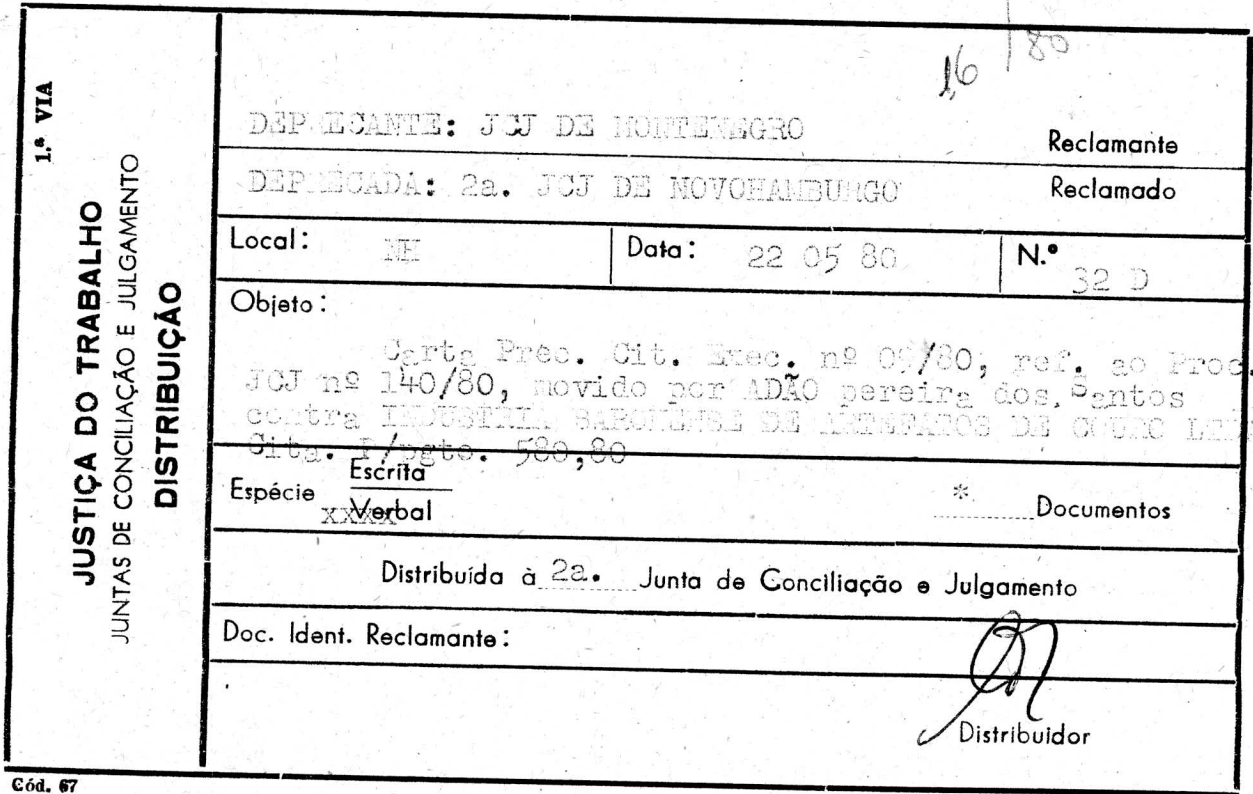 16/80
1.ª VIA
JUSTIÇA DO TRABALHO
JUNTAS DE CONCILIAÇÃO E JULGAMENTO
DISTRIBUIÇÃO
DEPRECANTE: JCJ DE MONTENEGRO Reclamante
DEPRECADA: 2a. JCJ DE NOVOHAMBURGO Reclamado
Local: NH Data: 22 05 80 N.º 32 D
Objeto:
Carta Prec. Cit. Exec. nº 09/80, ref. ao Proc.
JCJ nº 140/80, movido por ADÃO pereira dos Santos
contra INDUSTRIA BARONENSE DE ARTEFATOS DE COURO
Cita. P/pgto. 580,80
Espécie Escrita
xxxx Verbal * Documentos
Distribuída à 2a. Junta de Conciliação e Julgamento
Doc. Ident. Reclamante:
Distribuidor
Cód. 67